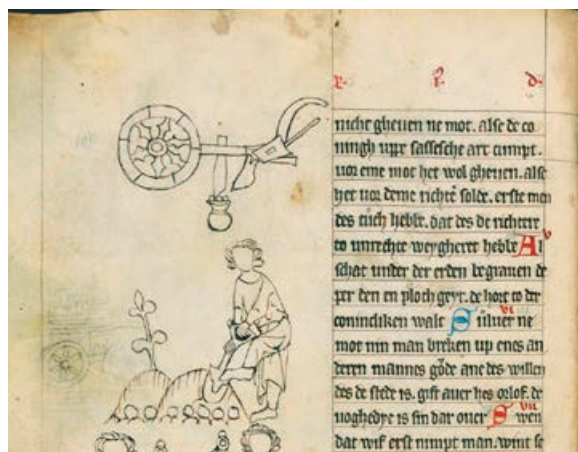 nicht gheuen ne mot. alse de co
ningh uppe sassesche art cumpt.
uor eme mot het wol gheuen. alse
het uor deme richte solde. erste men
des tüch hebbe. dat des de richtere
to unrechte weygheret hebbe Al v
schat under der erden begrauen de
per den en ploch geyt. de hort to der
coningliken walt Siluer ne vi
mot nin man breken up enes an
deren mannes göde ane des willen
des de stede is. gift auer hes orlof. de
uoghedye is sin dar ouer Swen vii
dat wif erst nimpt man. wint se